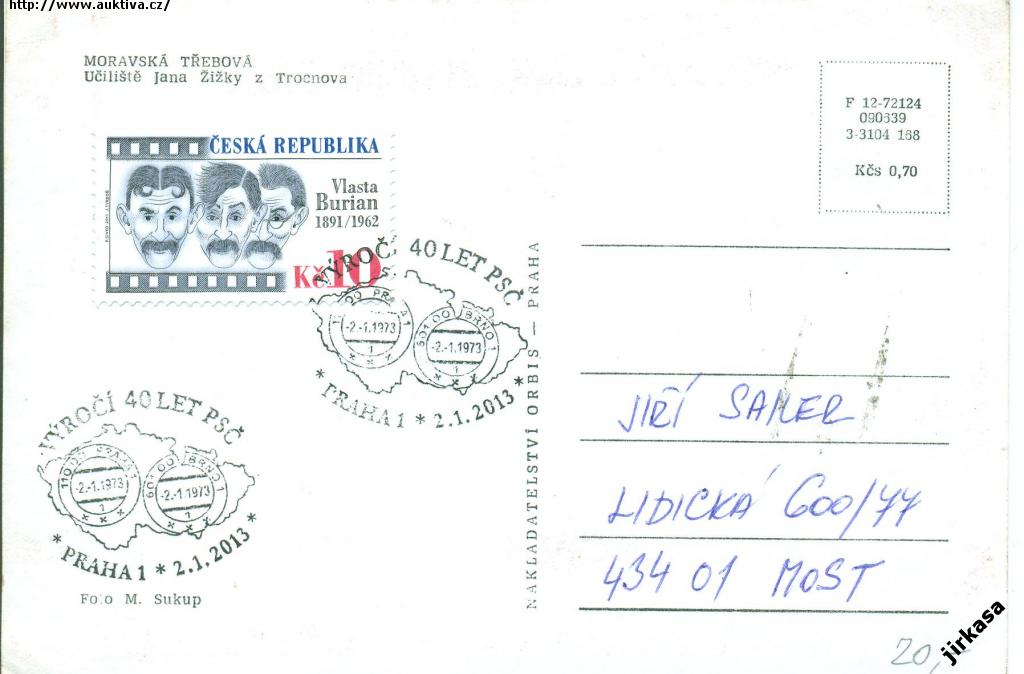 http://www.auktiva.cz/
MORAVSKÁ TŘEBOVÁ
Učiliště Jana Žižky z Trocnova
F 12-72124
090639
3-3104 168
Kčs 0,70
ČESKÁ REPUBLIKA
Vlasta
Burian
1891/1962
Kč 10
VÝROČÍ 40 LET PSČ
110 00 PRAHA 1
-2.-1.1973
1
601 00 BRNO 1
-2.-1.1973
1
* PRAHA 1 * 2.1.2013 *
VÝROČÍ 40 LET PSČ
110 00 PRAHA 1
-2.-1.1973
1
601 00 BRNO 1
-2.-1.1973
1
* PRAHA 1 * 2.1.2013 *
Foto M. Sukup
NAKLADATELSTVÍ ORBIS — PRAHA
JIŘÍ
LIDICKÁ 600/77
434 01 MOST
20,-
jirkasa